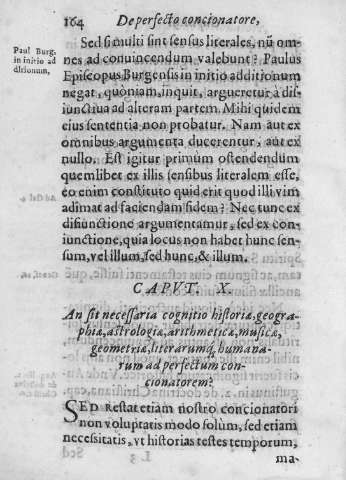 164 De perfecto concionatore,
Paul Burg.
in initio ad
ditionum,
Sed si multi sint sensus literales, nũ om-
nes ad conuincendum valebunt? Paulus
Episcopus Burgensis in initio additionum
negat, quòniam, inquit, argueretur à dis-
iunctiua ad alteram partem. Mihi quidem
eius sententia non probatur. Nam aut ex
omnibus argumenta ducerentur, aut ex
nullo. Est igitur primùm ostendendum
quemlibet ex illis sensibus literalem esse,
eo enim constituto quid erit quod illi vim
adimat ad faciendam fidem? Nec tunc ex
disiunctione argumentamur, sed ex con-
iunctione, quia locus non habet hunc sen-
sum, vel illum, sed hunc, & illum.
CAPVT. X.
An sit necessaria cognitio historiæ, geogra-
phiæ, astrologiæ, arithmeticæ, musicæ,
geometriæ, literarumq́; humana-
rum ad perfectum con-
cionatorem?
SED Restat etiam nostro concionatori
non voluptatis modo solùm, sed etiam
necessitatis, vt historias testes temporum,
ma-